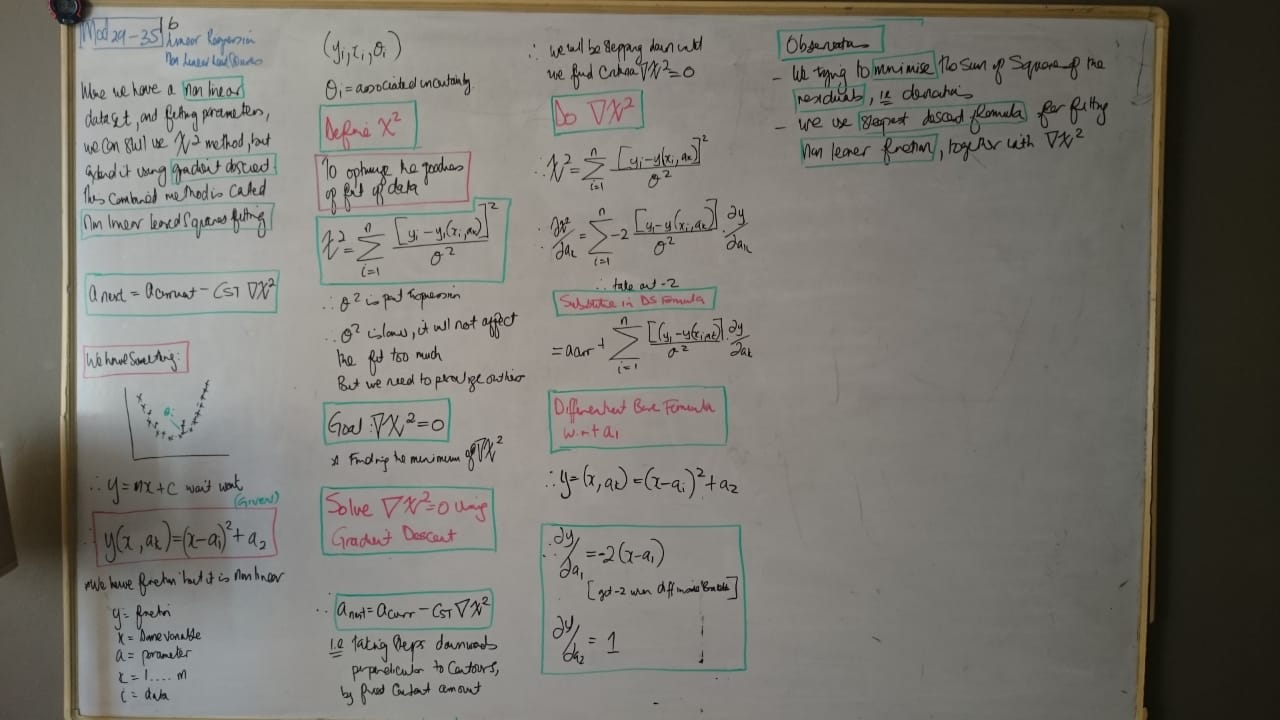 Mod 29-35 | b
Linear Regression
Non Linear Least Squares
we have a non linear
dataset, and fitting parameters,
we can still use χ² method, but
extend it using gradient descend
This combined method is called
Non linear Least Squares fitting
a next = a current - C ST ∇χ²
We have Something:
θi
∴ y = mx + c won't work
(Given)
y(x, ak) = (x-ai)² + a2
*We have function but it is Non linear
y = function
x = variable
a = parameter
= 1.... m
i = data
(yi, xi, σi)
σi = associated uncertainty
Define χ²
To optimize the goodness
of fit of data
χ² = Σ i=1 n [yi - yi(xi, ak)]² / σ²
∴ σ² is part expression
∴ σ² is low, it will not affect
the fit too much
But we need to penalize outliers
Goal: ∇χ² = 0
* Finding the minimum of ∇χ²
Solve ∇χ² = 0 using
Gradient Descent
∴ a next = a curr - C ST ∇χ²
i.e taking steps downwards
perpendicular to contours,
by fixed constant amount
∴ we will be stepping down until
we find Criteria ∇χ² = 0
Do ∇χ²
∴ χ² = Σ i=1 n [yi - y(xi, ak)]² / σ²
∴ ∂χ²/∂ak = Σ i=1 n -2 [yi - y(xi, ak)] / σ² . ∂y/∂ak
∴ take out -2
Substitute in DS Formula
= a curr + Σ i=1 n [(yi - y(xi, ak)] / σ² . ∂y/∂ak
Different Base Formula
w.r.t a1
∴ y = (x, ak) = (x-ai)² + a2
∴ ∂y/∂a1 = -2(x-a1)
[got -2 when diff inside Brackets]
∂y/∂a2 = 1
Observation
- We trying to minimise the sum of Square of the
residuals, i.e deviations
- we use steepest descend formula for fitting
Non linear function, together with ∇χ²